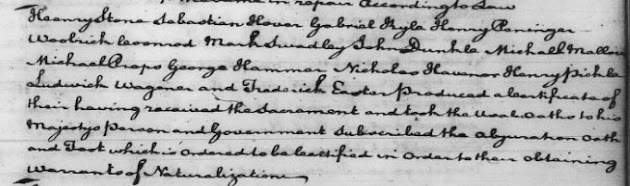 in repair According to Law
Henry Stone Sebastian Hover Gabriel Kyle Henry Peninger
Woolrich Coonrod Mark Swadley John Dunkle Michall Mallow
Michael Props George Hammer Nicholas Havener Henry Pickle
Ludwick Wagener and Frederick Easter Produced a Certificate of
their having received the Sacrament and took the Usual Oaths to his
Majestys Person and Government Subscribed the abjuration oath
and Test which is ordered to be Certified in Order to their obtaining
Warrants of Naturalization